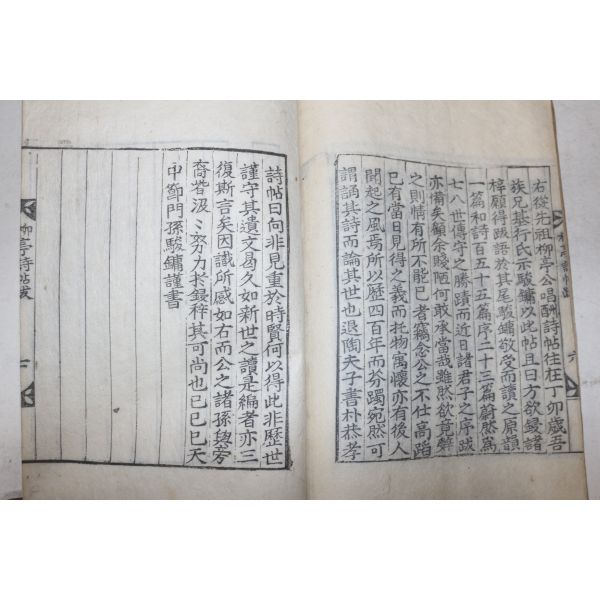 右從先祖柳亭公唱酬詩帖往在丁卯歲吾
族兄基行氏示駿鏞以此帖且曰方欲鋟諸
梓願得跋語於其尾駿鏞敬受而讀之原韻
一篇和詩百五十五篇序二十三篇蔚然爲
七八世傳守之勝蹟而近日諸君子之序跋
亦備矣顧余賤陋何敢承當我雖然欲竟辭
之則情有所不能已者竊念公之不仕高蹈
已有當日見得之義而托物寓懷亦有後人
聞起之風焉所以歷四百年而芬躅宛然可
謂誦其詩而論其世也退陶夫子書朴恭孝
詩帖曰向非見重於時賢何以得此非歷世
謹守其遺文易久如新世之讀是編者亦三
復斯言矣因識所感如右而公之諸孫與旁
裔皆汲〻努力於鋟梓其可尚也已己巳天
中節門孫駿鏞謹書
柳亭詩帖跋